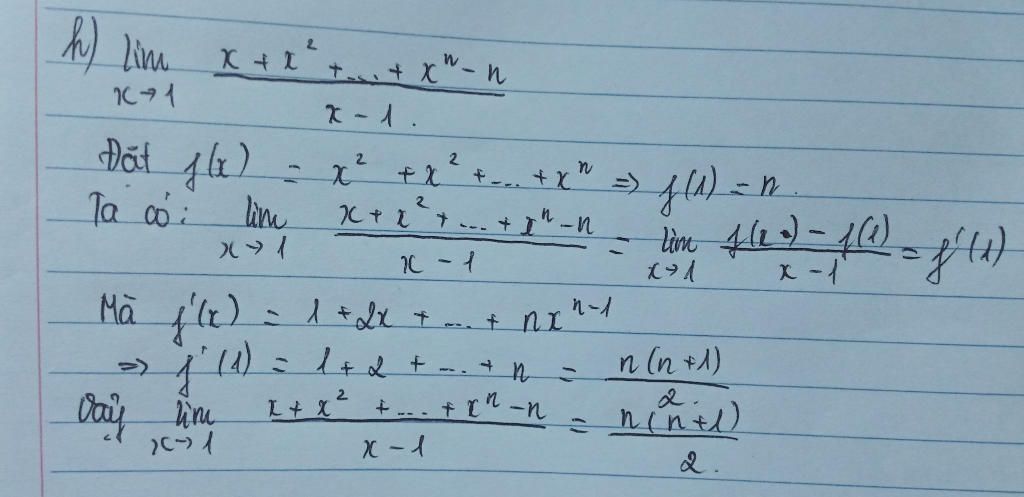 h) lim x→1 (x + x² + ... + xⁿ - n)/(x - 1).
Đặt f(x) = x² + x² + ... + xⁿ => f(1) = n.
Ta có: lim x→1 (x + x² + ... + xⁿ - n)/(x - 1) = lim x→1 (f(x) - f(1))/(x - 1) = f'(1)
Mà f'(x) = 1 + 2x + ... + nxⁿ⁻¹
=> f'(1) = 1 + 2 + ... + n = n(n+1)/2.
Vậy lim x→1 (x + x² + ... + xⁿ - n)/(x - 1) = n(n+1)/2.